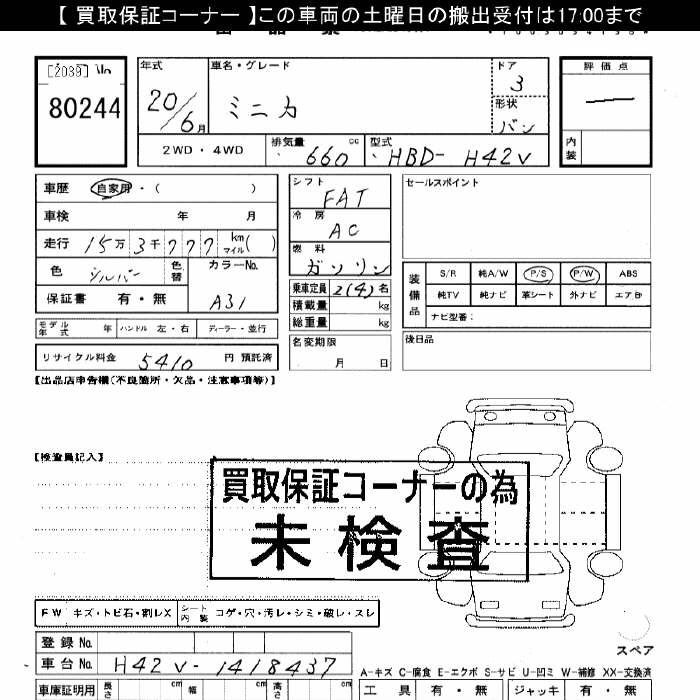 【 買取保証コーナー 】この車両の土曜日の搬出受付は17:00まで
[2039] No
80244
年式 車名・グレード ドア 評価点
20/6月 ミニカ 3
形状
バン
2WD・4WD 排気量 660 cc 型式 HBD- H42V 内装
車歴 自家用・( )
車検 年 月
走行 15万3千777 km マイル( )
色 シルバー 色替 カラーNo. A31
保証書 有・無
モデル年式 年 ハンドル 左・右 ディーラー・並行
リサイクル料金 5410 円 預託済
シフト FAT
冷房 AC
燃料 ガソリン
乗車定員 2(4)名
積載量 kg
総重量 kg
名変期限
月 日
セールスポイント
装備品 S/R 純A/W P/S P/W ABS
純TV 純ナビ 革シート 外ナビ エアB
ナビ型番:
後日品
【出品店申告欄(不良箇所・欠品・注意事項等)】
【検査員記入】
買取保証コーナーの為
未検査
FW キズ・トビ石・割レX シート内装 コゲ・穴・汚レ・シミ・破レ・スレ
登録No.
車台No. H42V-1418437
スペア
A-キズ C-腐食 E-エクボ S-サビ U-凹ミ W-補修 XX-交換済
車庫証明用 長さ cm 幅 cm 高さ cm
工具 有・無 ジャッキ 有・無